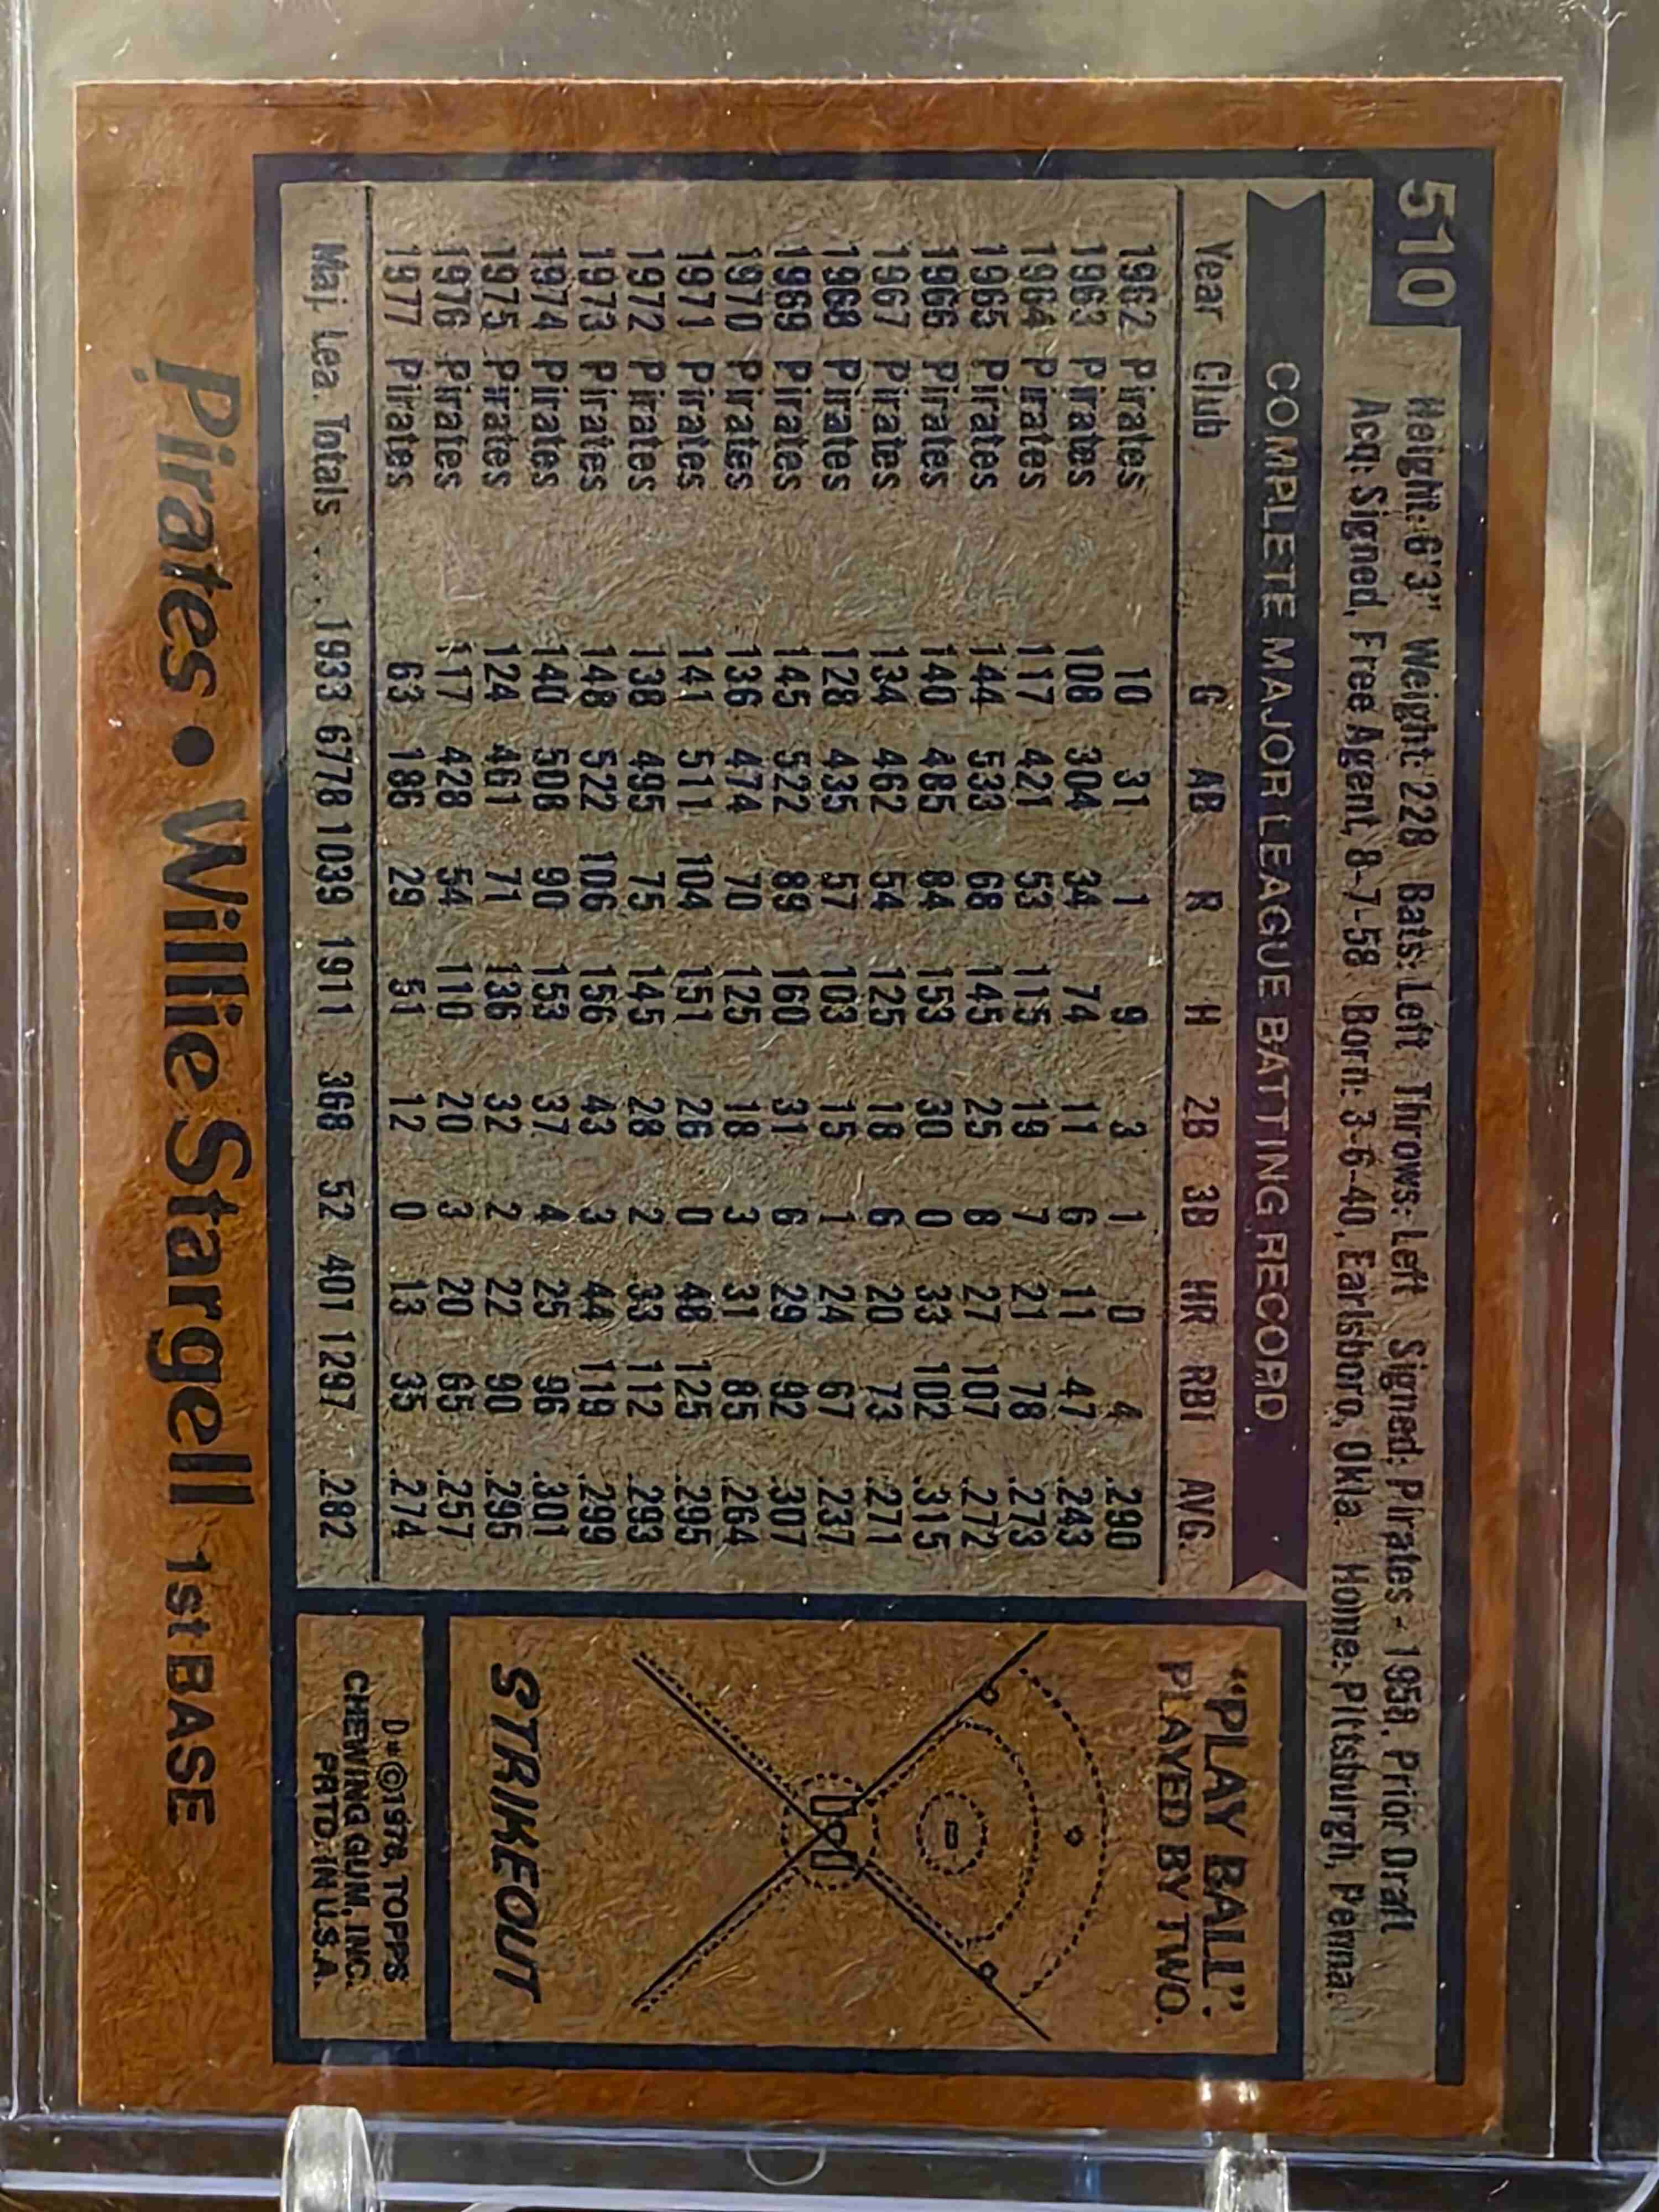 510
Height: 6'3" Weight: 228 Bats: Left Throws: Left Signed: Pirates - 1958, Prior Draft
Acq: Signed, Free Agent, 8-7-58 Born: 3-6-40, Earlsboro, Okla. Home: Pittsburgh, Penna.
COMPLETE MAJOR LEAGUE BATTING RECORD
Year Club G AB R H 2B 3B HR RBI AVG.
1962 Pirates 10 31 1 9 3 1 0 4 .290
1963 Pirates 108 304 34 74 11 6 11 47 .243
1964 Pirates 117 421 53 115 19 7 21 78 .273
1965 Pirates 144 533 68 145 25 8 27 107 .272
1966 Pirates 140 485 84 153 30 0 33 102 .315
1967 Pirates 134 462 54 125 18 6 20 73 .271
1968 Pirates 128 435 57 103 15 1 24 67 .237
1969 Pirates 145 522 89 160 31 6 29 92 .307
1970 Pirates 136 474 70 125 18 3 31 85 .264
1971 Pirates 141 511 104 151 26 0 48 125 .295
1972 Pirates 138 495 75 145 28 2 33 112 .293
1973 Pirates 148 522 106 156 43 3 44 119 .299
1974 Pirates 140 508 90 153 37 4 25 96 .301
1975 Pirates 124 461 71 136 32 2 22 90 .295
1976 Pirates 117 428 54 110 20 3 20 65 .257
1977 Pirates 63 186 29 51 12 0 13 35 .274
Maj. Lea. Totals . . 1933 6778 1039 1911 368 52 401 1297 .282
"PLAY BALL":
PLAYED BY TWO.
STRIKEOUT
D* ©1978, TOPPS
CHEWING GUM, INC.
PRTD. IN U.S.A.
Pirates • Willie Stargell 1st BASE